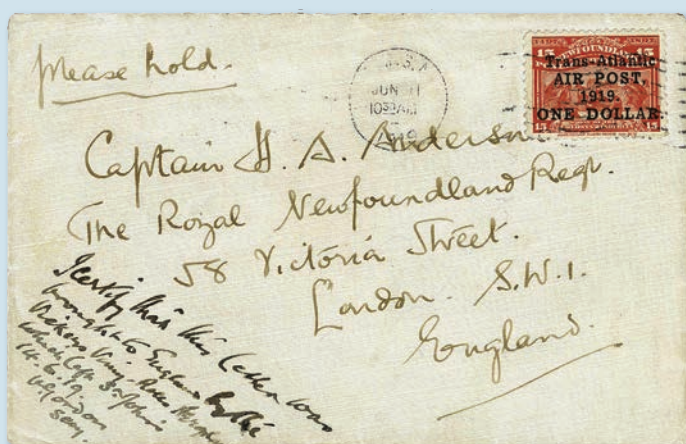 Please hold.
JUN 11
10 30 AM
1919
15 NEWFOUNDLAND 15
Trans-Atlantic
AIR POST,
1919.
ONE DOLLAR.
15 15
Captain H. A. Anderson
The Royal Newfoundland Regt.
58 Victoria Street.
London. S.W.1.
England.
I certify that this letter was
brought to England by the
Vickers Vimy Rolls
which left St. John's
14.6.19.